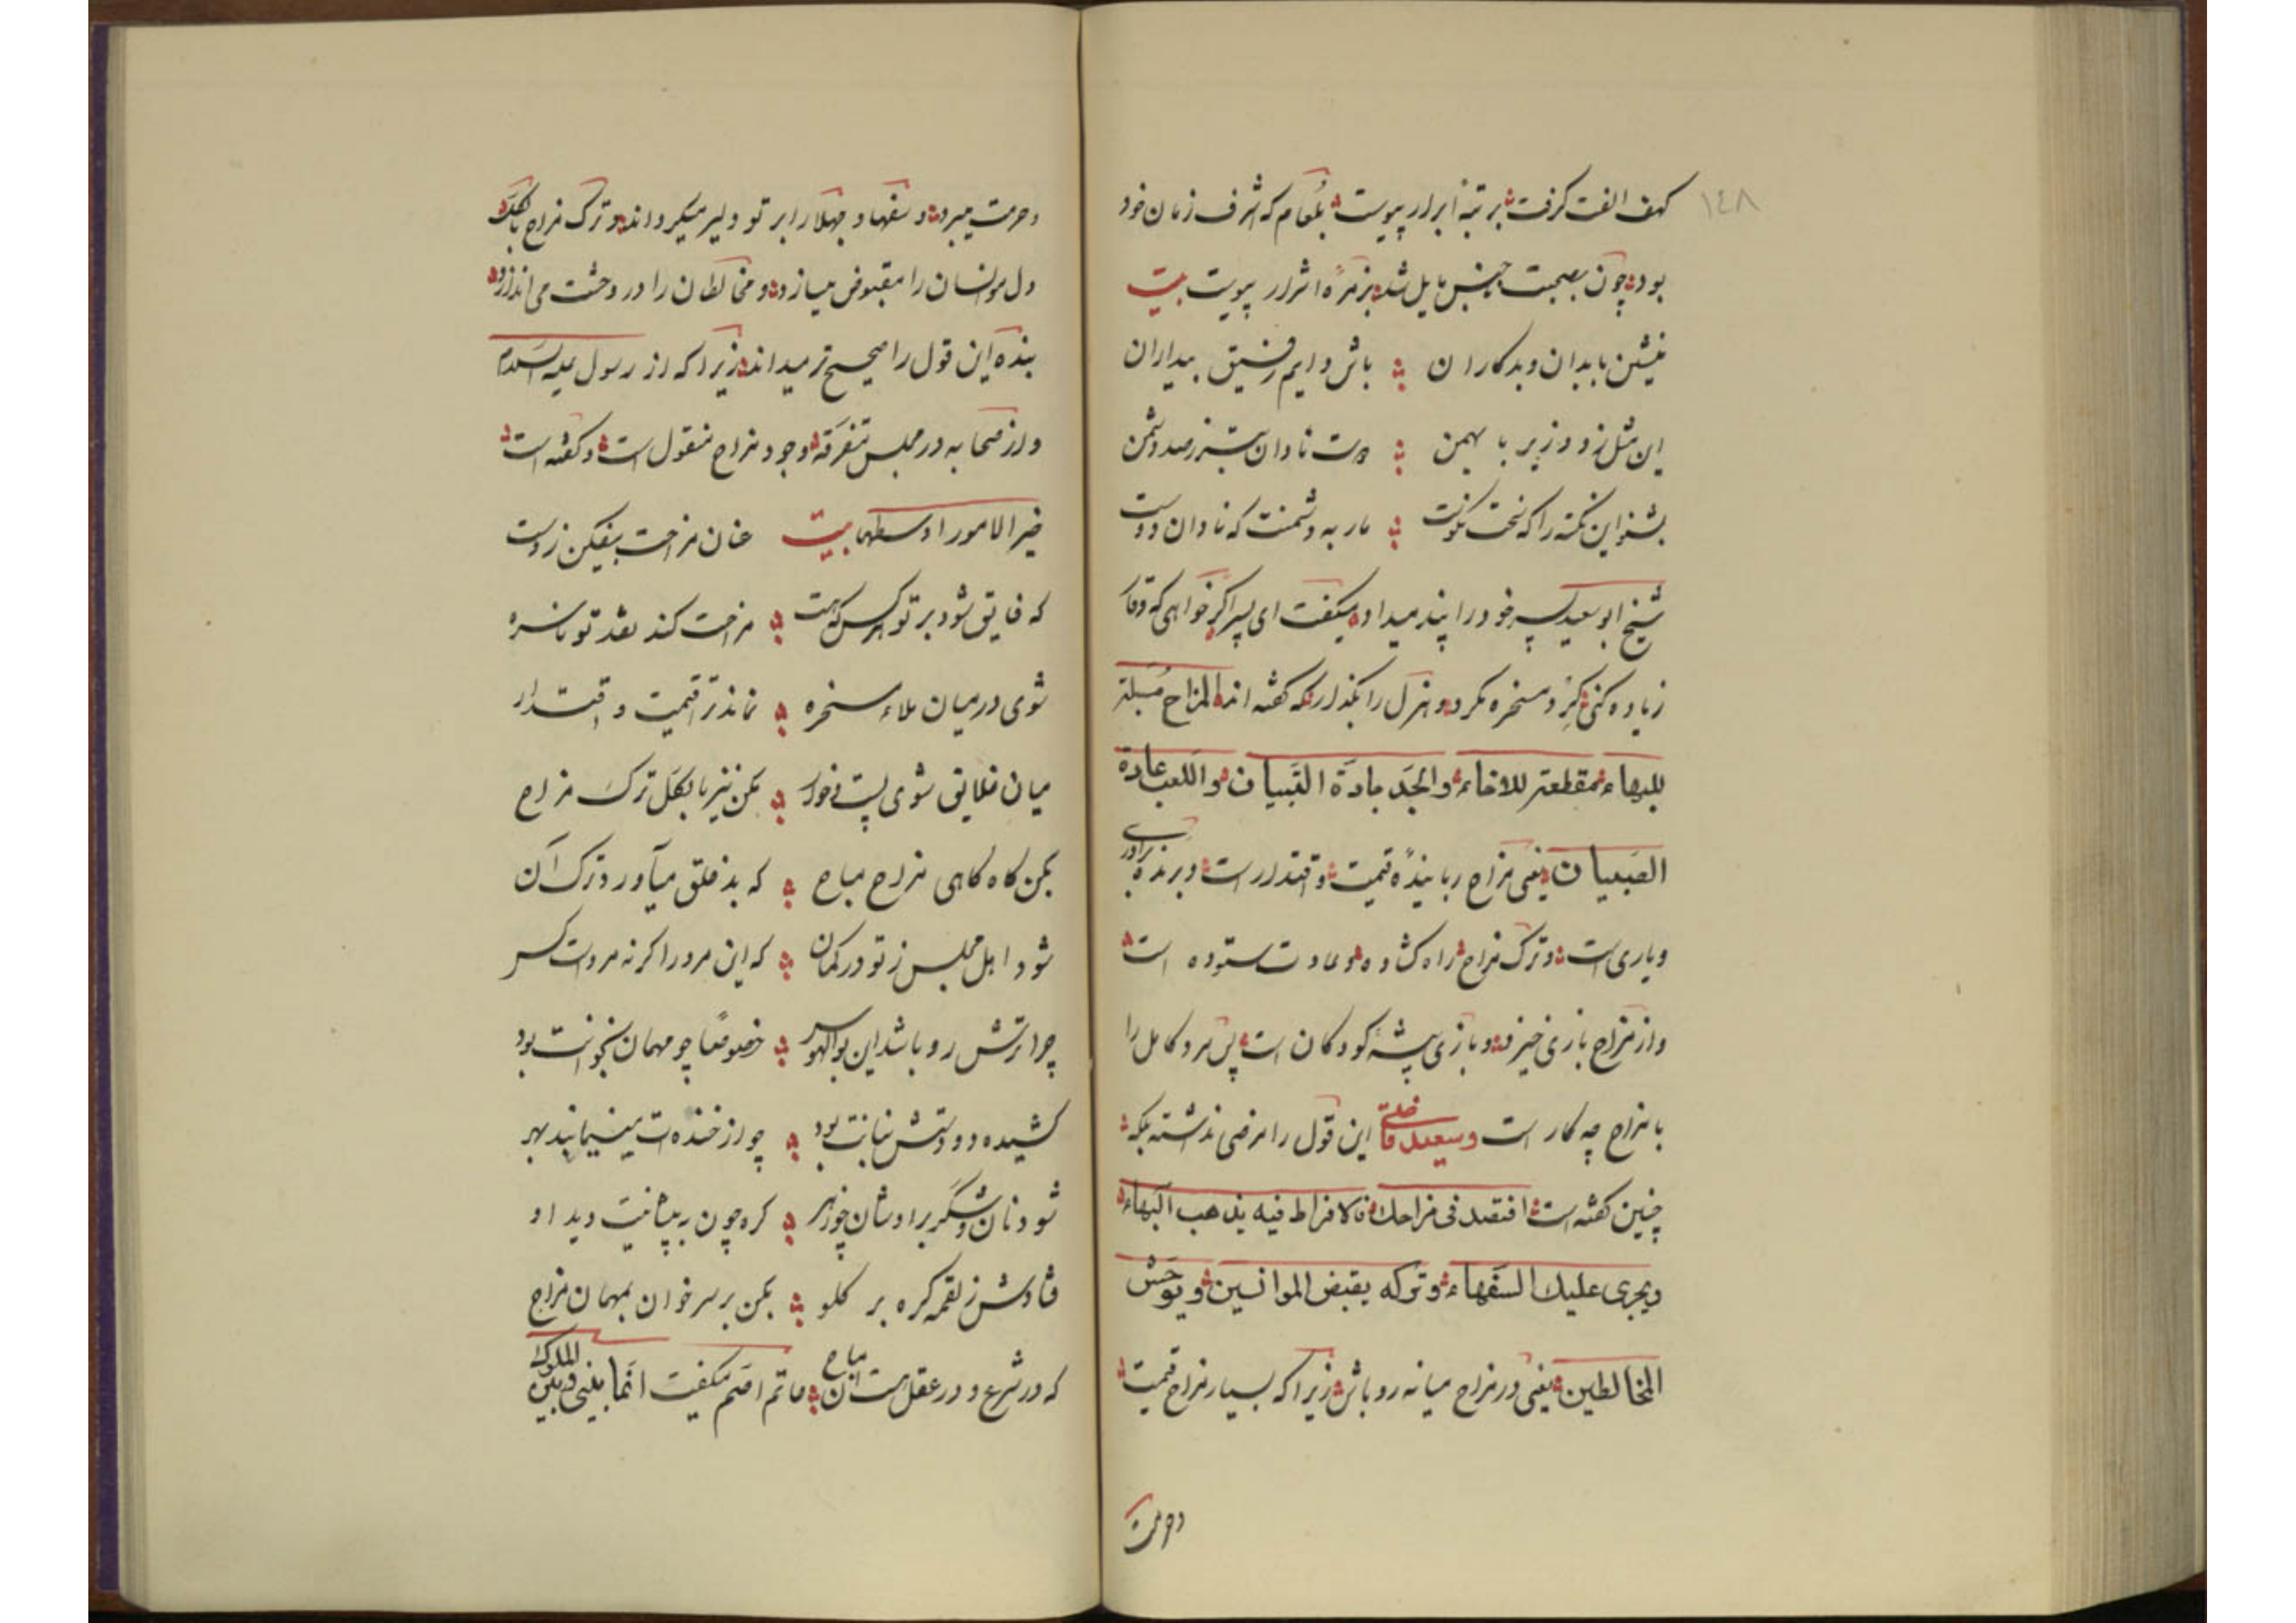 ١٤٨
کهف الفت گرفت برتبهٔ ابرار پیوست بلعام که اشرف زمان خود
بود چون بصحبت خبیس مایل شد بزمرهٔ اشرار پیوست بیت
منشین بابدان و بدکاران باش دایم رفیق بیداران
این مثل زد وزیر با بهمن دوست نادان بتر ز صد دشمن
بشنو این نکته را که سخت نکوست مار به دشمنت که نادان دوست
شیخ ابو سعید پسر خود را پند میداد میگفت ای پسر اگر خواهی که وقار
زیاده کنی گرد مسخره مگرد و هزل را بگذار که گفته اند المزاح مسلبة
للبهاء مقطعة للاخاء والجد جادة الفتیان واللعب عادة
الصبیان یعنی مزاح ربایندهٔ قیمت و اقتدار است و برندهٔ برادری
ویاری است وترک مزاح راه گشاده و عادت ستوده است
واز مزاح بازی خیزد و بازی پیشهٔ کودکان است پس مرد کامل را
با مزاح چه کار است وسعید قاضی این قول را مرضی نداشته بلکه
چنین گفته است اقتصد فی مزاحك فالافراط فیه یذهب البهاء
ویجری علیك السفهاء وترکه یقبض الموانسین ویوحش
المخالطین یعنی در مزاح میانه رو باش زیرا که بسیار مزاح قیمت
وحرمت
وحرمت میبرد و سفها و جهلا را بر تو دلیر میگرداند و ترک مزاح بالکل
دل مونسان را مقبوض میسازد و مخالطان را در وحشت می اندازد
بنده این قول را صحیح تر میداند زیرا که از رسول علیه السلام
واز صحابه در مجلس متفرقه وجود مزاح منقول است و گفته است
خیر الامور اوسطها بیت عنان مزاحت بیفکن ز دست
که فایق شود بر تو هر کس که هست مزاحت کند نقد تو ناسره
شوی در میان ملاء سخره نماند ترا قیمت و اقتدار
میان خلایق شوی پست و خوار مکن نیز بالکل ترک مزاح
بکن گاه گاهی مزاح مباح که بد خلق میآورد ترک آن
شود اهل مجلس ز تو در گمان که این مرد را گر نه مرد است کس
چرا ترش رو باشد این بوالهوس خصوصا چو مهمان بخوانت بود
کشیده دو دستش بنانت بود چو از خنده ات می نیابند بهر
شود نان و شکر بر اوشان چو زهر گره چون به پیشانیت دید او
فتادش ز لقمه گره بر گلو بکن بر سر خوان بمهمان مزاح
که در شرع و در عقل هست آن مباح حاتم اصم میگفت انما بینی وبین الملوک